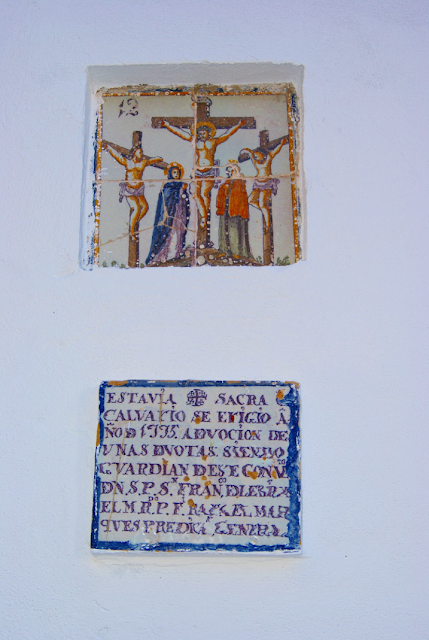 12
ESTAVIA SACRA
CALVARIO SE ERIGIO Â
ÑO D A DVOCION DE
VNAS DVOTAS SIENDO
GVARDIAN DESTE CONVᵗᵒ
DN. S. P. S.ⁿ FRANᶜᵒ
EL M.R.P.F. RAFAEL MAR
QVES GENERAL